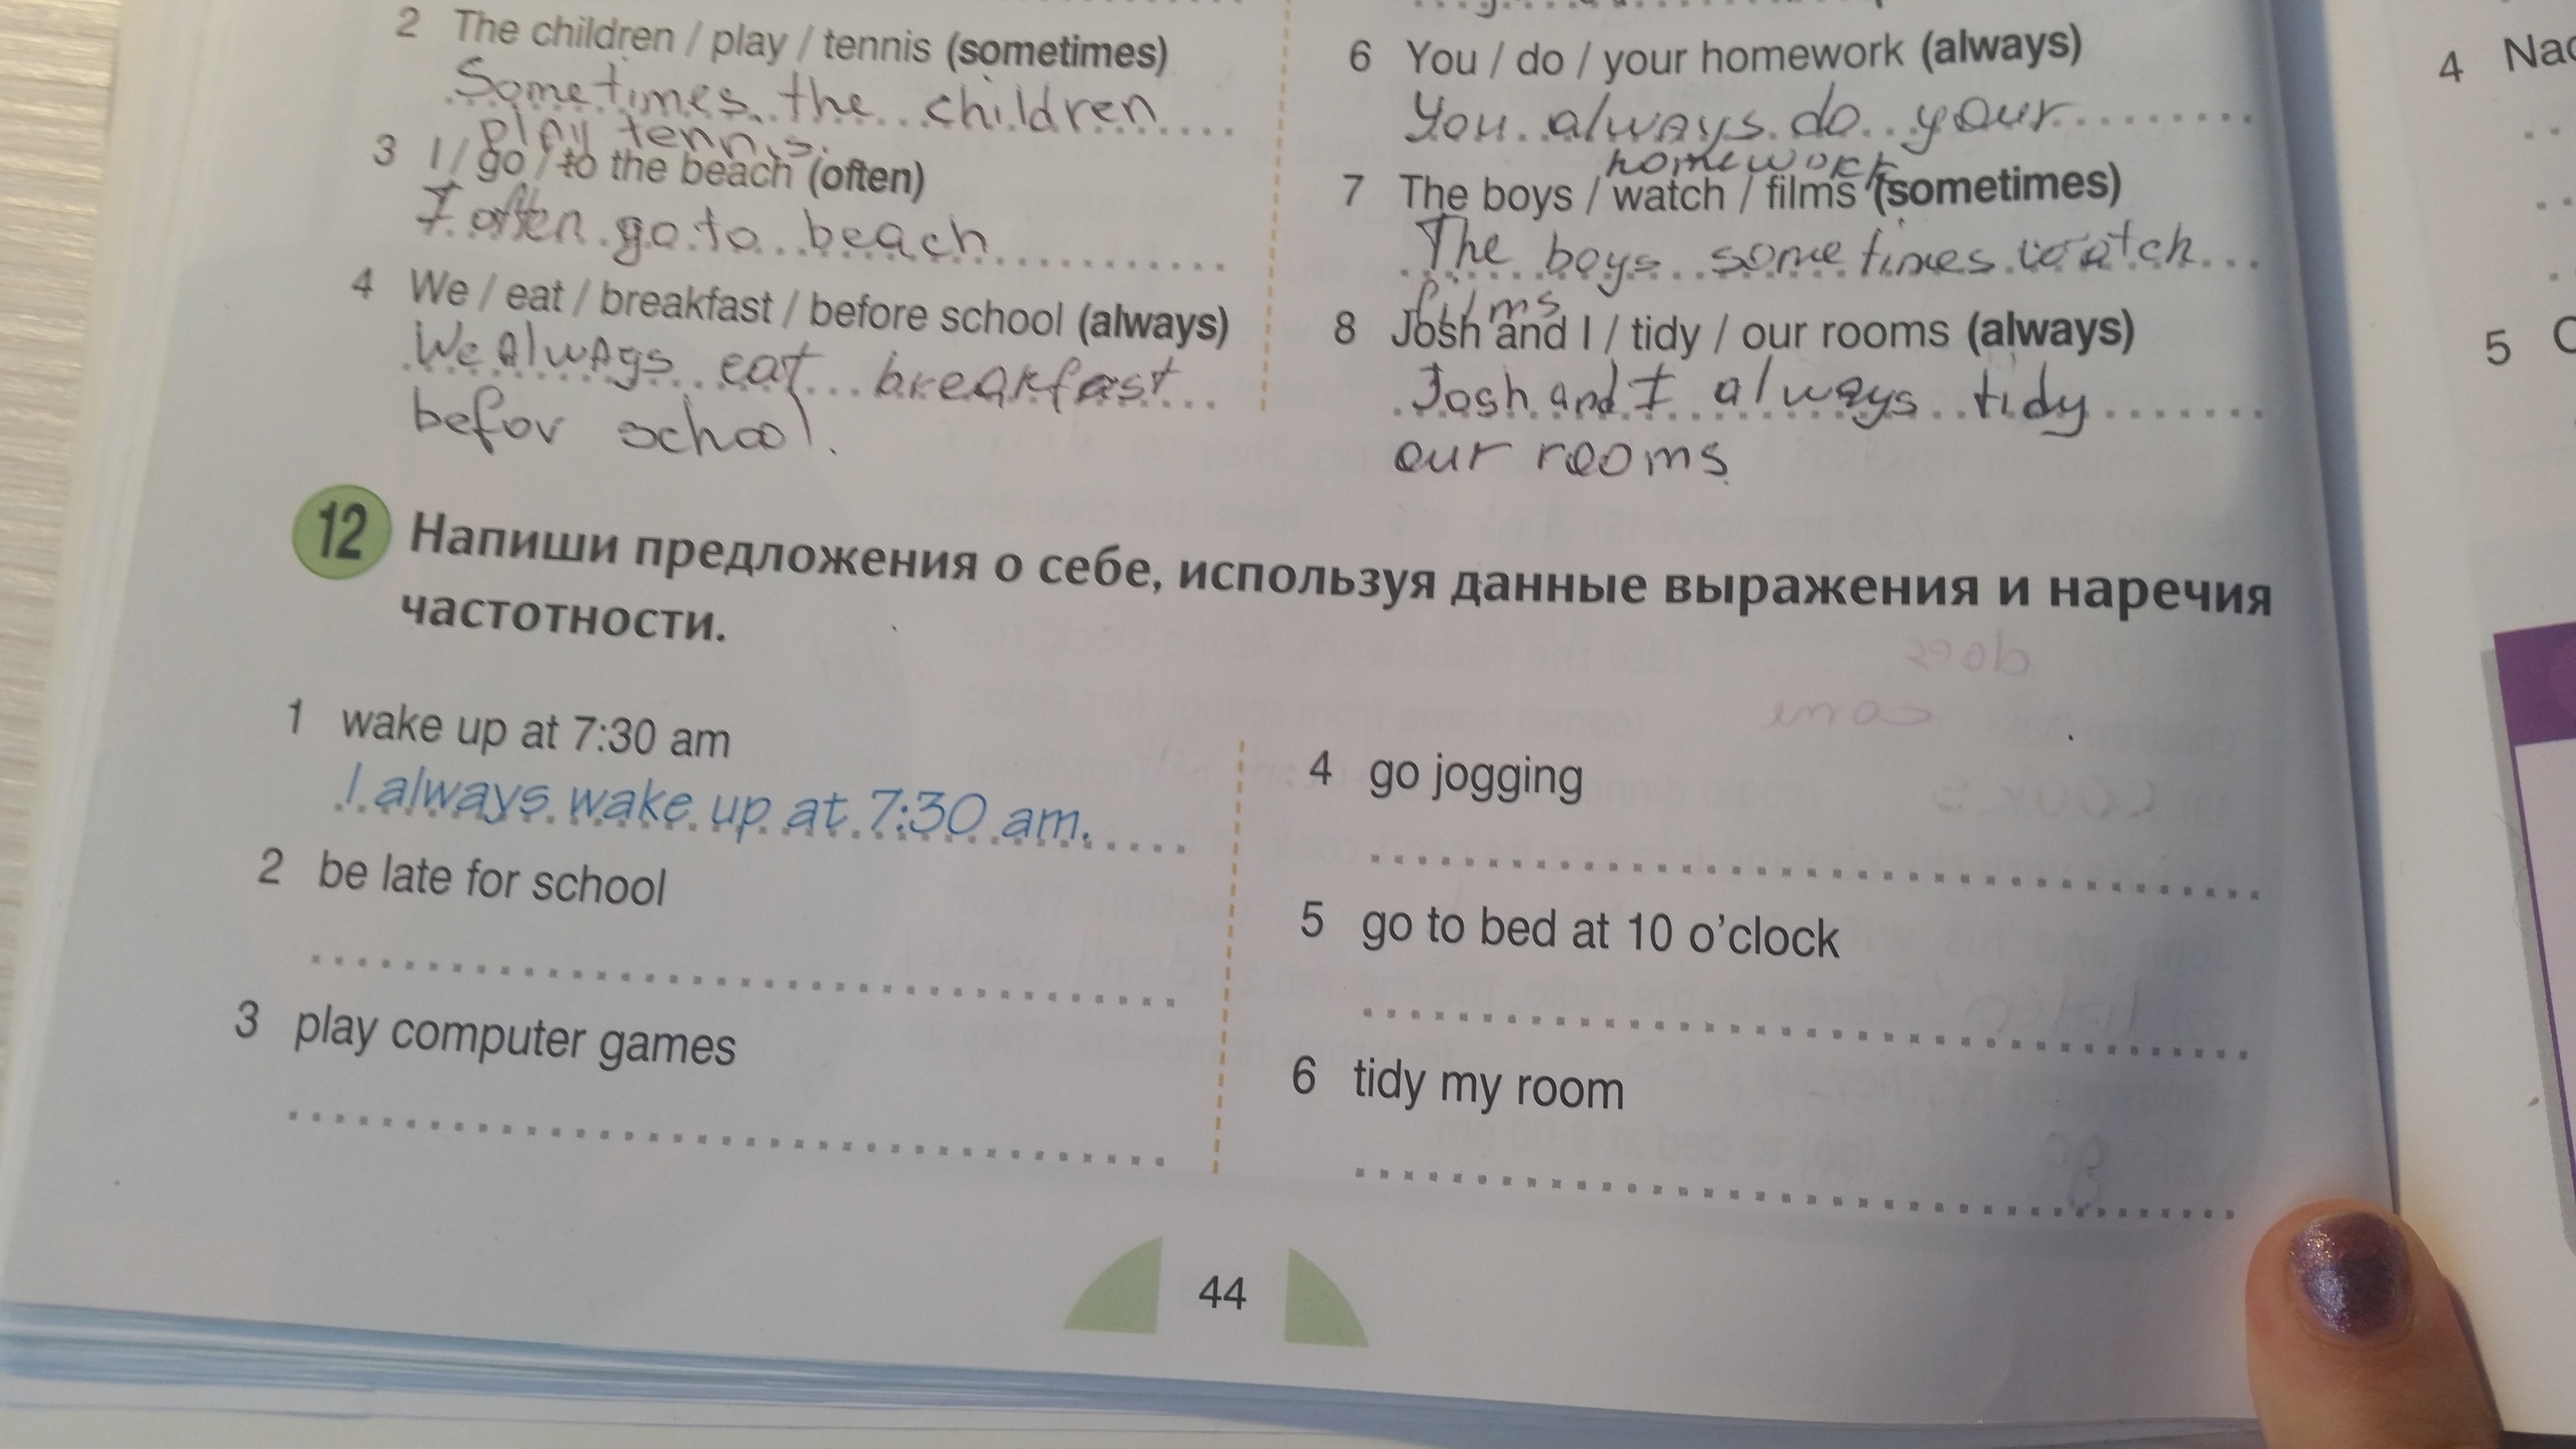 2 The children / play / tennis (sometimes)
Sometimes the children
play tennis.
3 I / go / to the beach (often)
I often go to beach
4 We / eat / breakfast / before school (always)
We always eat breakfast
befor school.
6 You / do / your homework (always)
You always do your
homework
7 The boys / watch / films (sometimes)
The boys sometimes watch
films
8 Josh and I / tidy / our rooms (always)
Josh and I always tidy
our rooms
12 Напиши предложения о себе, используя данные выражения и наречия
частотности.
1 wake up at 7:30 am
I always wake up at 7:30 am.
2 be late for school
3 play computer games
4 go jogging
5 go to bed at 10 o'clock
6 tidy my room
44
4
5